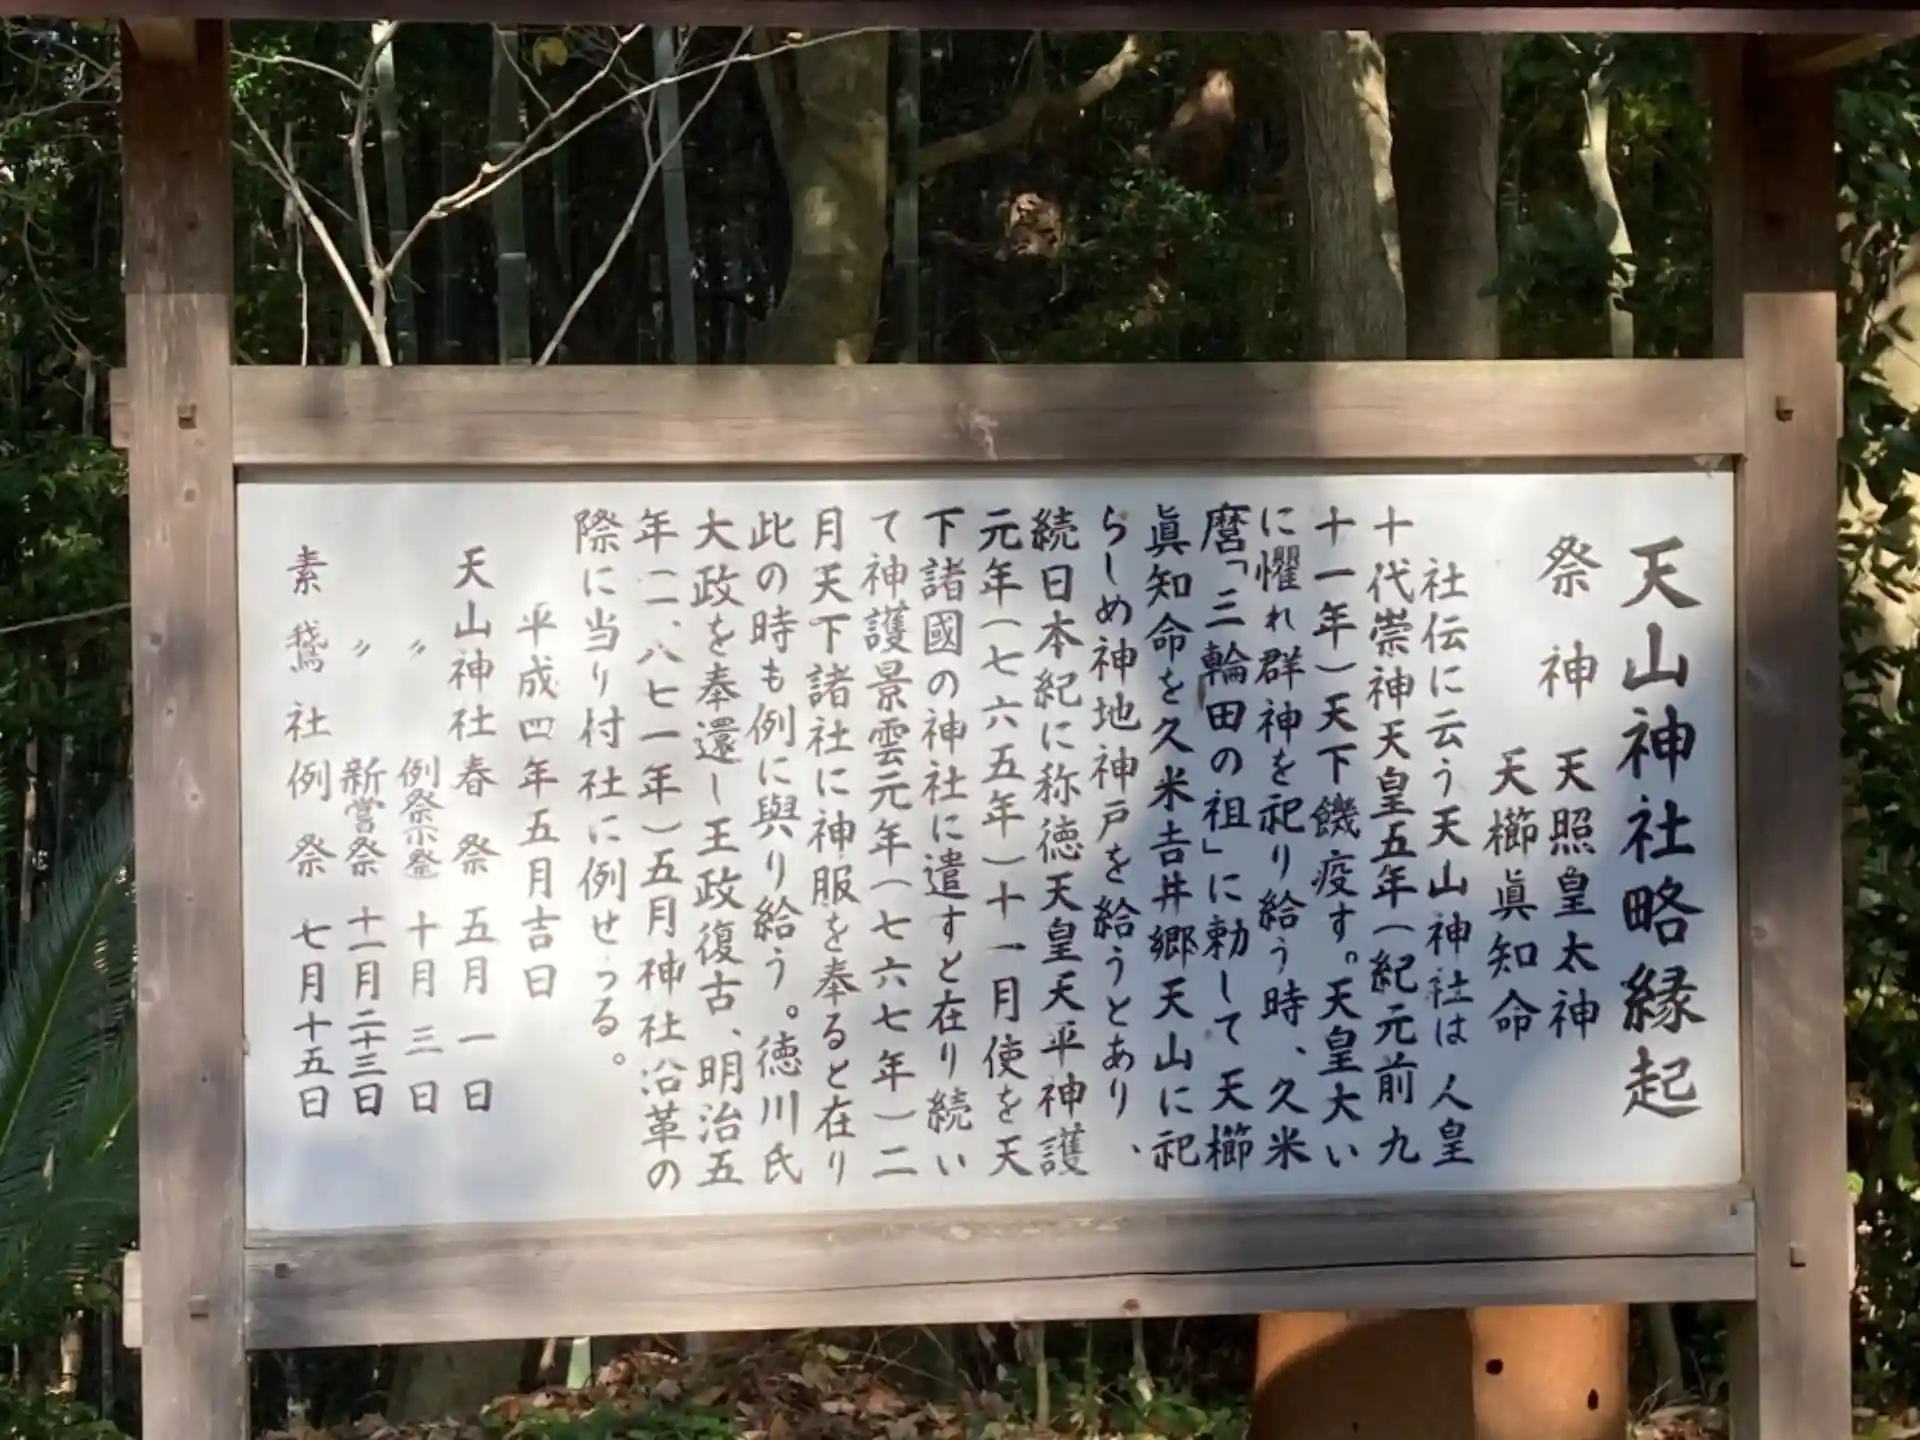 天山神社略縁起
祭神 天照皇太神
天櫛眞知命
社伝に云う天山神社は人皇
十代崇神天皇五年(紀元前九
十一年)天下饑疫す。天皇大い
に懼れ群神を祀り給う時、久米
麿「三輪田の祖」に勅して天櫛
眞知命を久米吉井郷天山に祀
らしめ神地神戸を給うとあり、
続日本紀に称徳天皇天平神護
元年(七六五年)十一月使を天
下諸國の神社に遣すと在り続い
て神護景雲元年(七六七年)二
月天下諸社に神服を奉ると在り
此の時も例に與り給う。徳川氏
大政を奉還し王政復古、明治五
年二、八七一年)五月神社沿革の
際に当り村社に例せらる。
平成四年五月吉日
天山神社春祭 五月一日
〃 例祭 十月三日
〃 新嘗祭 十一月二十三日
素鵞社例祭 七月十五日